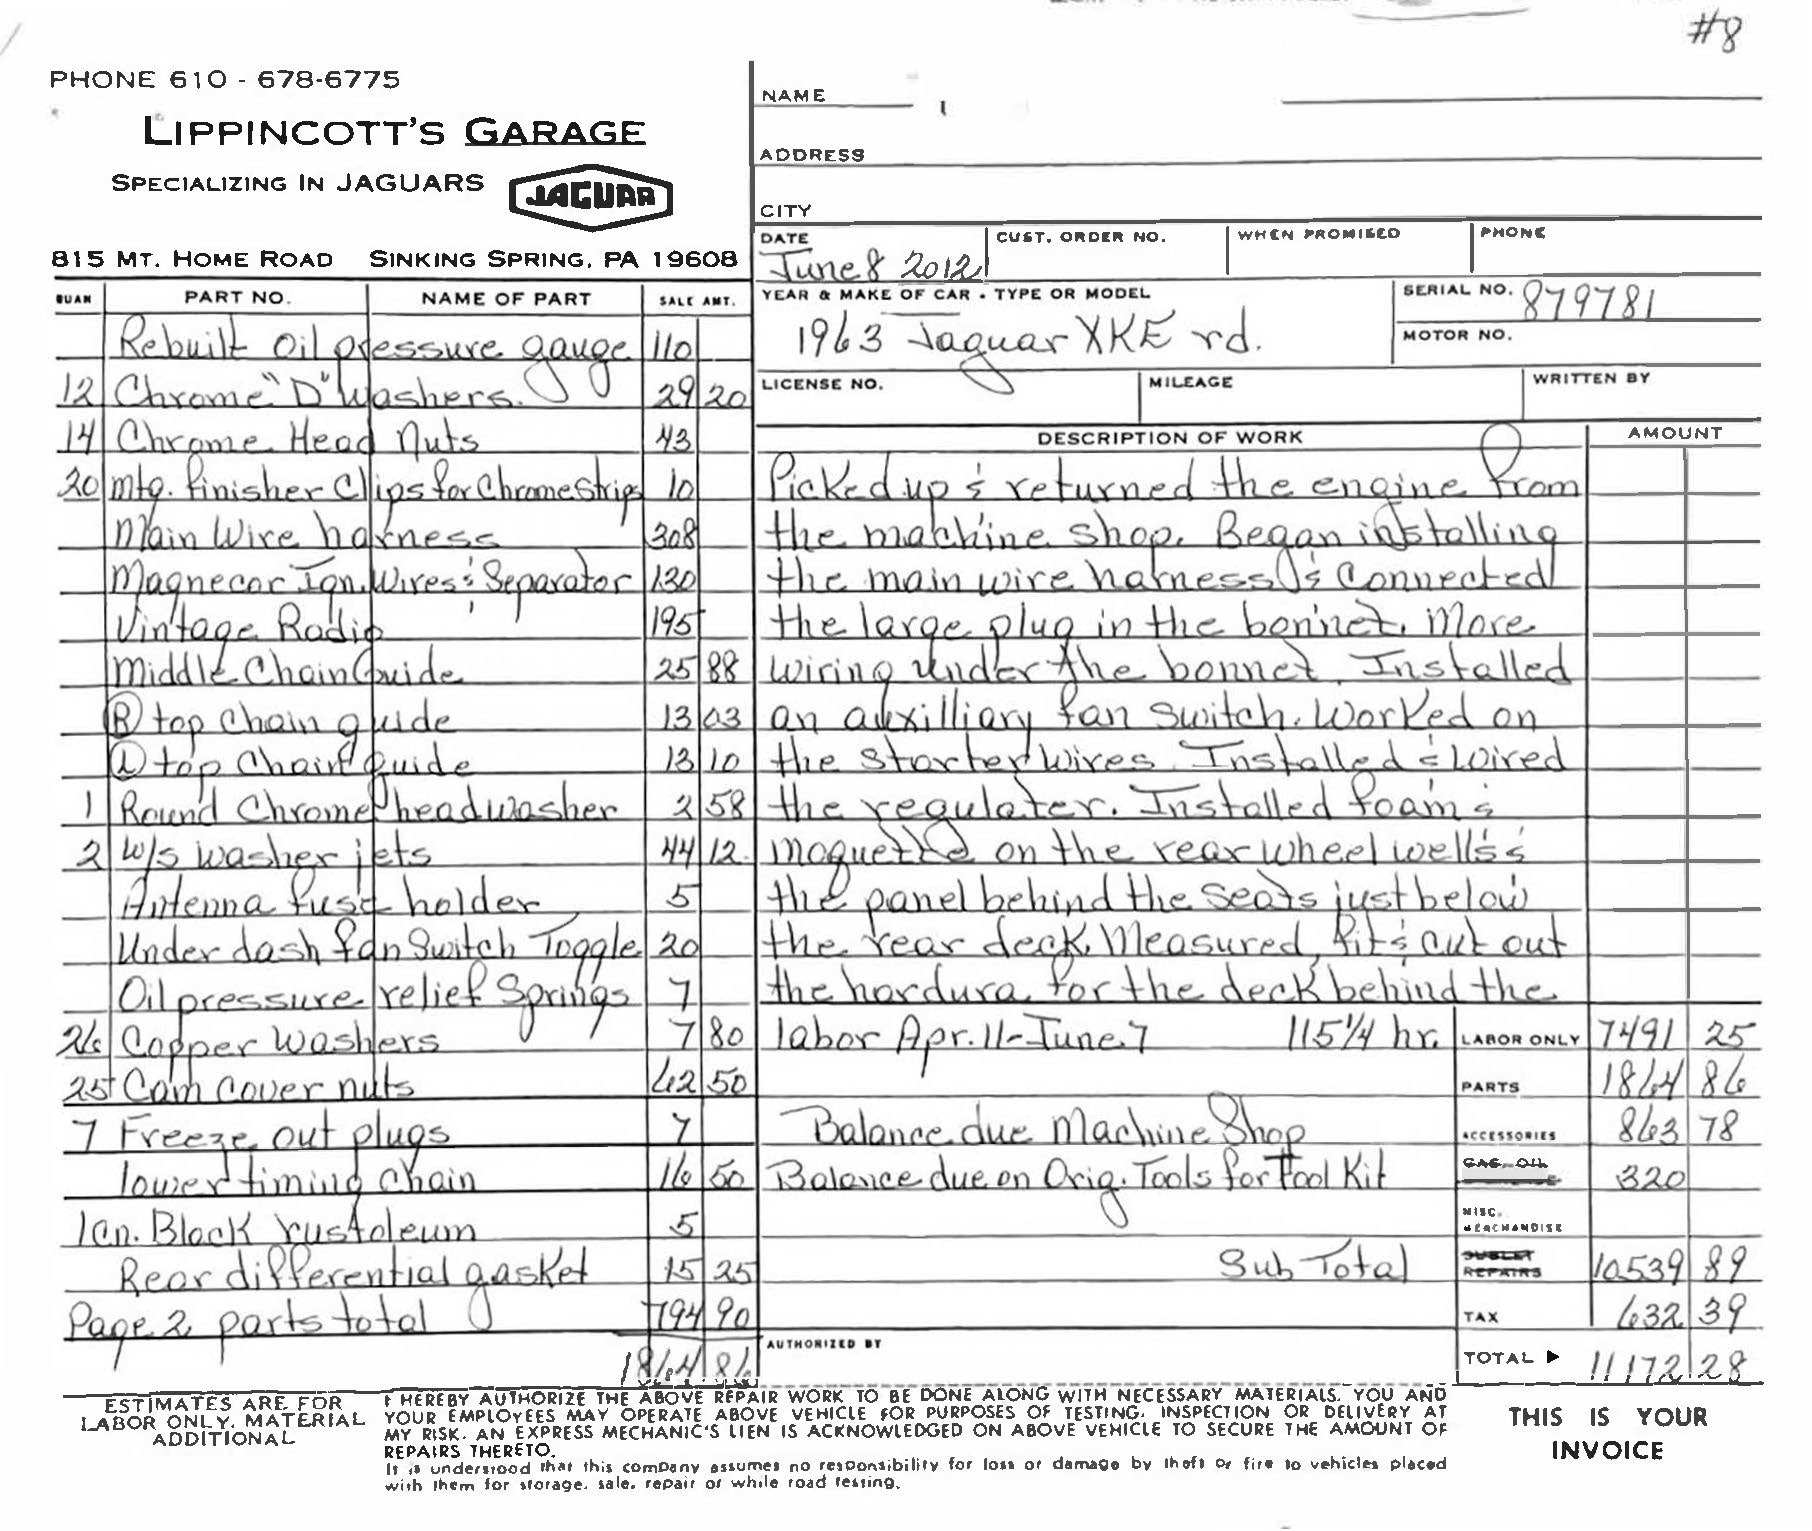 #8
PHONE 610 - 678-6775
LIPPINCOTT'S GARAGE
SPECIALIZING IN JAGUARS
JAGUAR
815 MT. HOME ROAD SINKING SPRING, PA 19608
NAME
ADDRESS
CITY
DATE CUST. ORDER NO. WHEN PROMISED PHONE
June 8 2012
YEAR & MAKE OF CAR - TYPE OR MODEL SERIAL NO. 879781
1963 Jaguar XKE rd. MOTOR NO.
LICENSE NO. MILEAGE WRITTEN BY
QUAN PART NO. NAME OF PART SALE AMT.
Rebuilt Oil pressure gauge 110
12 Chrome "D" Washers. 29 20
14 Chrome Head Nuts 43
20 mtg. finisher Clips for Chrome Strips 10
Main Wire harness 308
Magnecor Ign. Wires & Separator 130
Vintage Radio 195
Middle Chain Guide 25 88
(R) top Chain guide 13 03
(L) top Chain guide 13 10
1 Round Chrome head washer 2 58
2 W/S washer jets 44 12
Antenna fuse holder 5
Under dash fan Switch Toggle 20
Oil pressure relief Springs 7
26 Copper Washers 7 80
25 Cam cover nuts 62 50
7 Freeze out plugs 7
lower timing chain 16 50
1 Cn. Black rustoleum 5
Rear differential gasket 15 25
Page 2 parts total 794 90
1864 86
DESCRIPTION OF WORK AMOUNT
Picked up & returned the engine from
the machine shop. Began installing
the main wire harness & Connected
the large plug in the bonnet. More
wiring under the bonnet. Installed
an auxilliary fan switch. Worked on
the starter wires. Installed & Wired
the regulater. Installed foam &
moquette on the rear wheel wells &
the panel behind the seats just below
the rear deck. Measured, fit & cut out
the hardura for the deck behind the
labor Apr. 11-June 7 115 1/4 hr. LABOR ONLY 7491 25
PARTS 1864 86
Balance due Machine Shop ACCESSORIES 863 78
Balance due on Orig. Tools for Tool Kit GAS-OIL 320
MISC. MERCHANDISE
Sub Total SUBLET REPAIRS 10539 89
TAX 632 39
AUTHORIZED BY
TOTAL ► 11172 28
ESTIMATES ARE FOR
LABOR ONLY. MATERIAL
ADDITIONAL
I HEREBY AUTHORIZE THE ABOVE REPAIR WORK TO BE DONE ALONG WITH NECESSARY MATERIALS. YOU AND
YOUR EMPLOYEES MAY OPERATE ABOVE VEHICLE FOR PURPOSES OF TESTING, INSPECTION OR DELIVERY AT
MY RISK. AN EXPRESS MECHANIC'S LIEN IS ACKNOWLEDGED ON ABOVE VEHICLE TO SECURE THE AMOUNT OF
REPAIRS THERETO.
It is understood that this company assumes no responsibility for loss or damage by theft or fire to vehicles placed
with them for storage, sale, repair or while road testing.
THIS IS YOUR
INVOICE